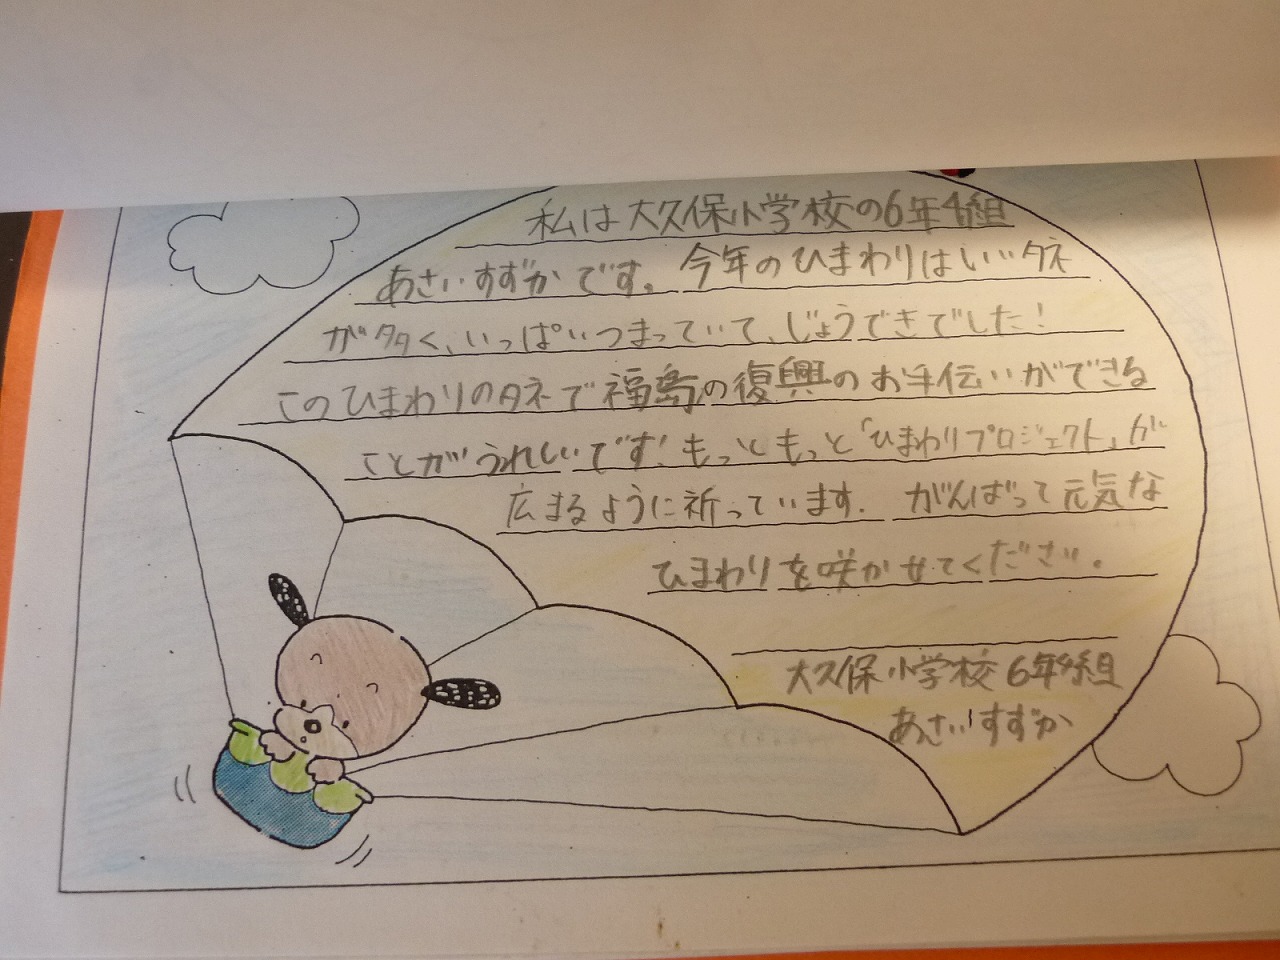 私は大久保小学校の6年4組
あさいすずかです。今年のひまわりはいいタネ
が多く、いっぱいつまっていて、じょうできでした!
このひまわりのタネで福島の復興のお手伝いができる
ことがうれしいです!もっともっと「ひまわりプロジェクト」が
広まるように祈っています。がんばって元気な
ひまわりを咲かせてください。
大久保小学校6年4組
あさいすずか